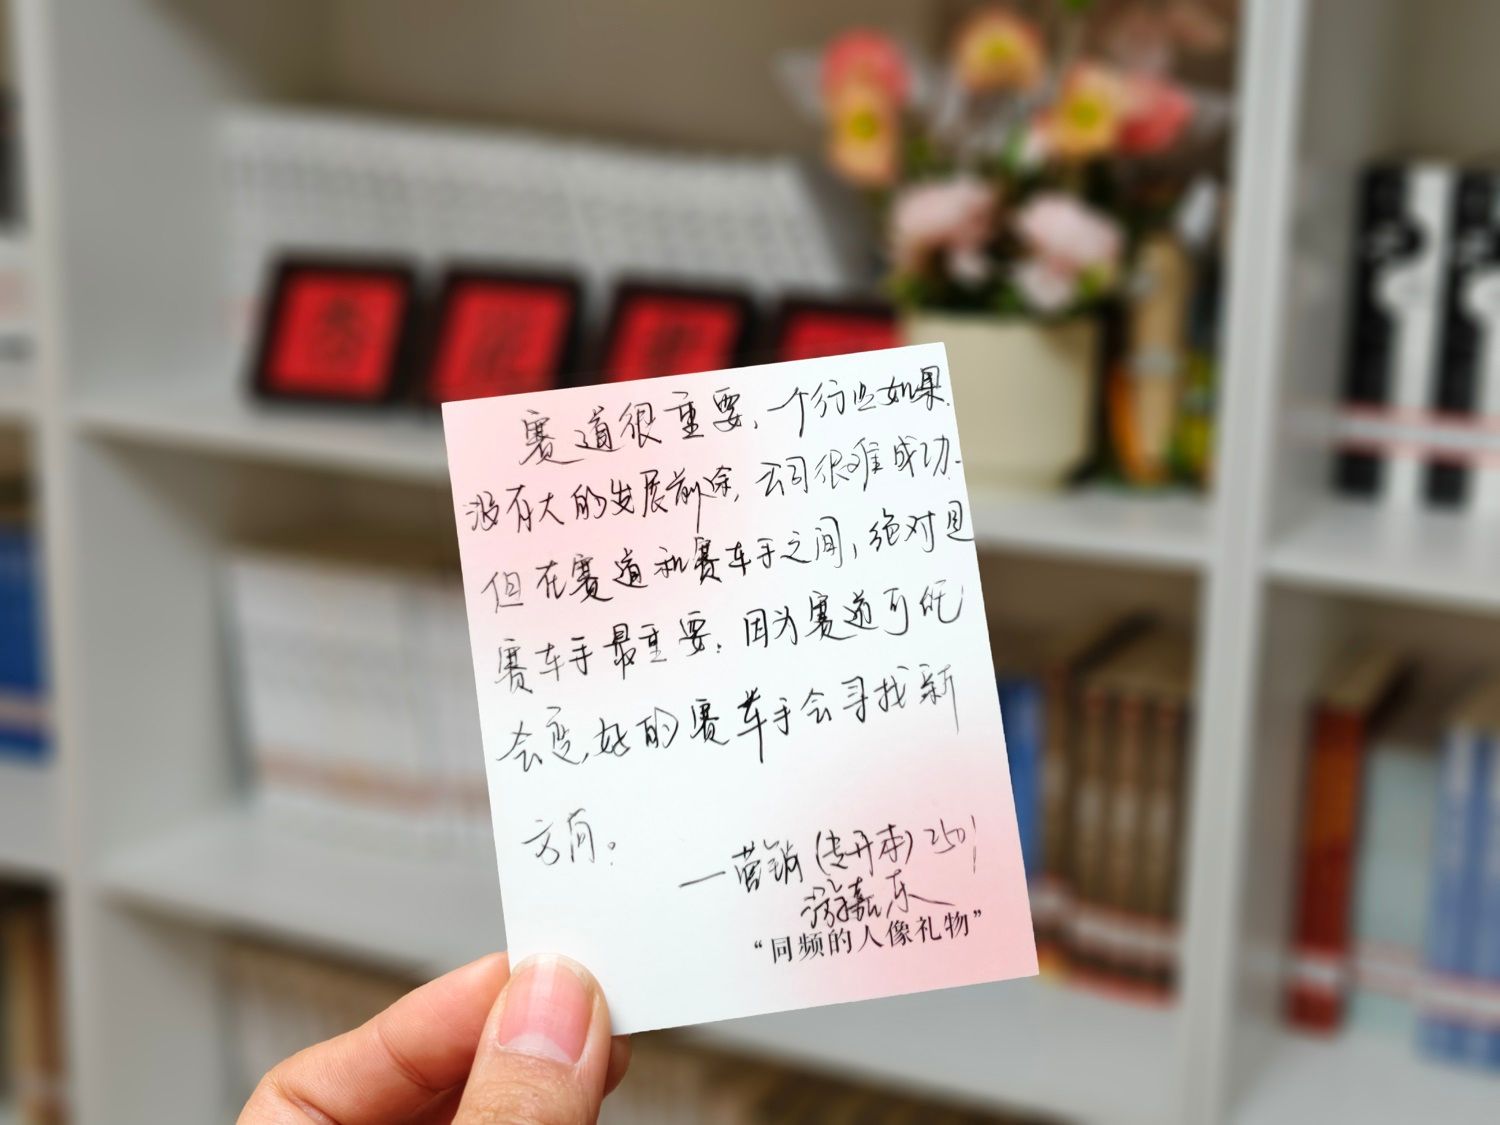 赛道很重要,一个行业如果
没有大的发展前途,公司很难成功.
但在赛道和赛车手之间,绝对是
赛车手最重要.因为赛道可能
会变,好的赛车手会寻找新
方向。
—营销(专升本)2501
游嘉东
“同频的人像礼物”